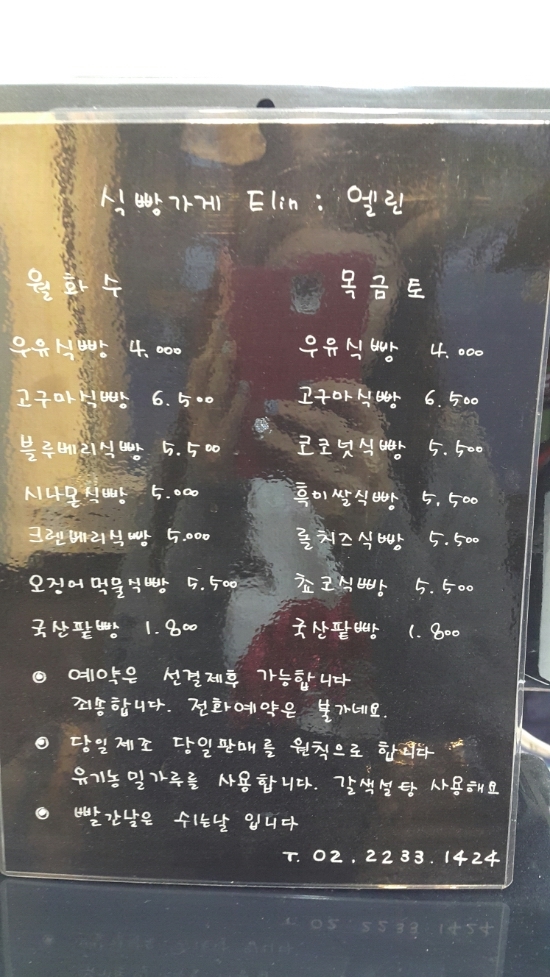 식빵가게 Elin : 엘린
월화수 목금토
우유식빵 4.000 우유식빵 4.000
고구마식빵 6.500 고구마식빵 6.500
블루베리식빵 5.500 코코넛식빵 5.500
시나몬식빵 5.000 흑미쌀식빵 5.500
크렌베리식빵 5.000 롤치즈식빵 5.500
오징어먹물식빵 5.500 쵸코식빵 5.500
국산팥빵 1.800 국산팥빵 1.800
예약은 선결제후 가능합니다
죄송합니다. 전화예약은 불가네요.
당일제조 당일판매를 원칙으로 합니다
유기농밀가루를 사용합니다. 갈색설탕 사용해요
빨간날은 쉬는날 입니다
T. 02. 2233. 1424